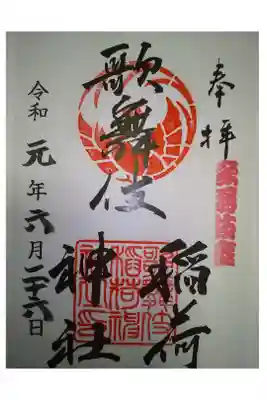 奉拝
歌舞伎
稲荷
神社
令和元年六月二十六日